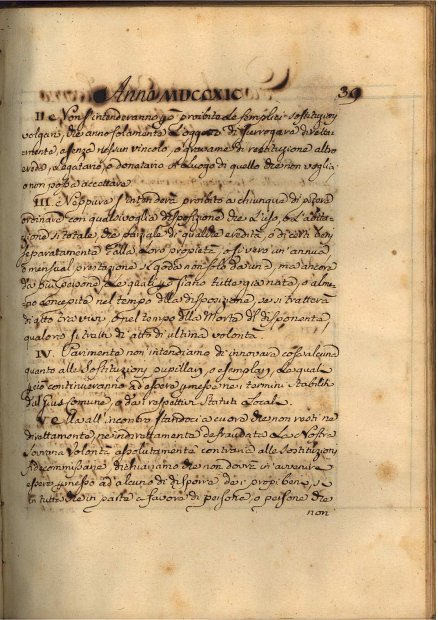 Anno MDCCXIC 39
II. Non s'intenderanno però proibite le semplici sostituzioni
volgari, che anno solamente l'oggetto di surrogare direttamente
mente, e senza nessun vincolo, o gravame di restituzione altro
erede, o legatario, o donatario in luogo di quello che non voglia,
o non possa accettare.
III. Neppure s'intenderà proibito a chiunque di potere
ordinare con qualsivoglia disposizione che l'uso, o l'abita-
zione sì totale, che parziale di qualche eredità, o di certi beni
separatamente dalla loro proprietà, o sivvero un'annua,
o mensual prestazione si goda non solo da una, ma ancora
da più persone le quali però siano tutte già nate, o alme-
no concepite nel tempo della disposizione, se si tratterà
di atto tra vivi, o nel tempo della Morte del disponente,
qualora si tratti di atto di ultima volontà.
IV. Parimente non intendiamo di innovare cosa alcuna
quanto alle Sostituzioni pupillari, o esemplari, le quali
perciò continueranno ad essere permesse nei termini stabiliti
dal Gius Comune, o dai respettivi Statuti Locali.
V. E all'incontro standoci a cuore che non resti ne
direttamente, ne indirettamente defraudata la Nostra
Sovrana Volontà assolutamente contraria alle sostituzioni
fidecommissarie, dichiariamo che non dovrà in avvenire
essere permesso ad alcuno di disporre dei propri beni,
in tutto, che in parte a favore di persona, o persone che
non